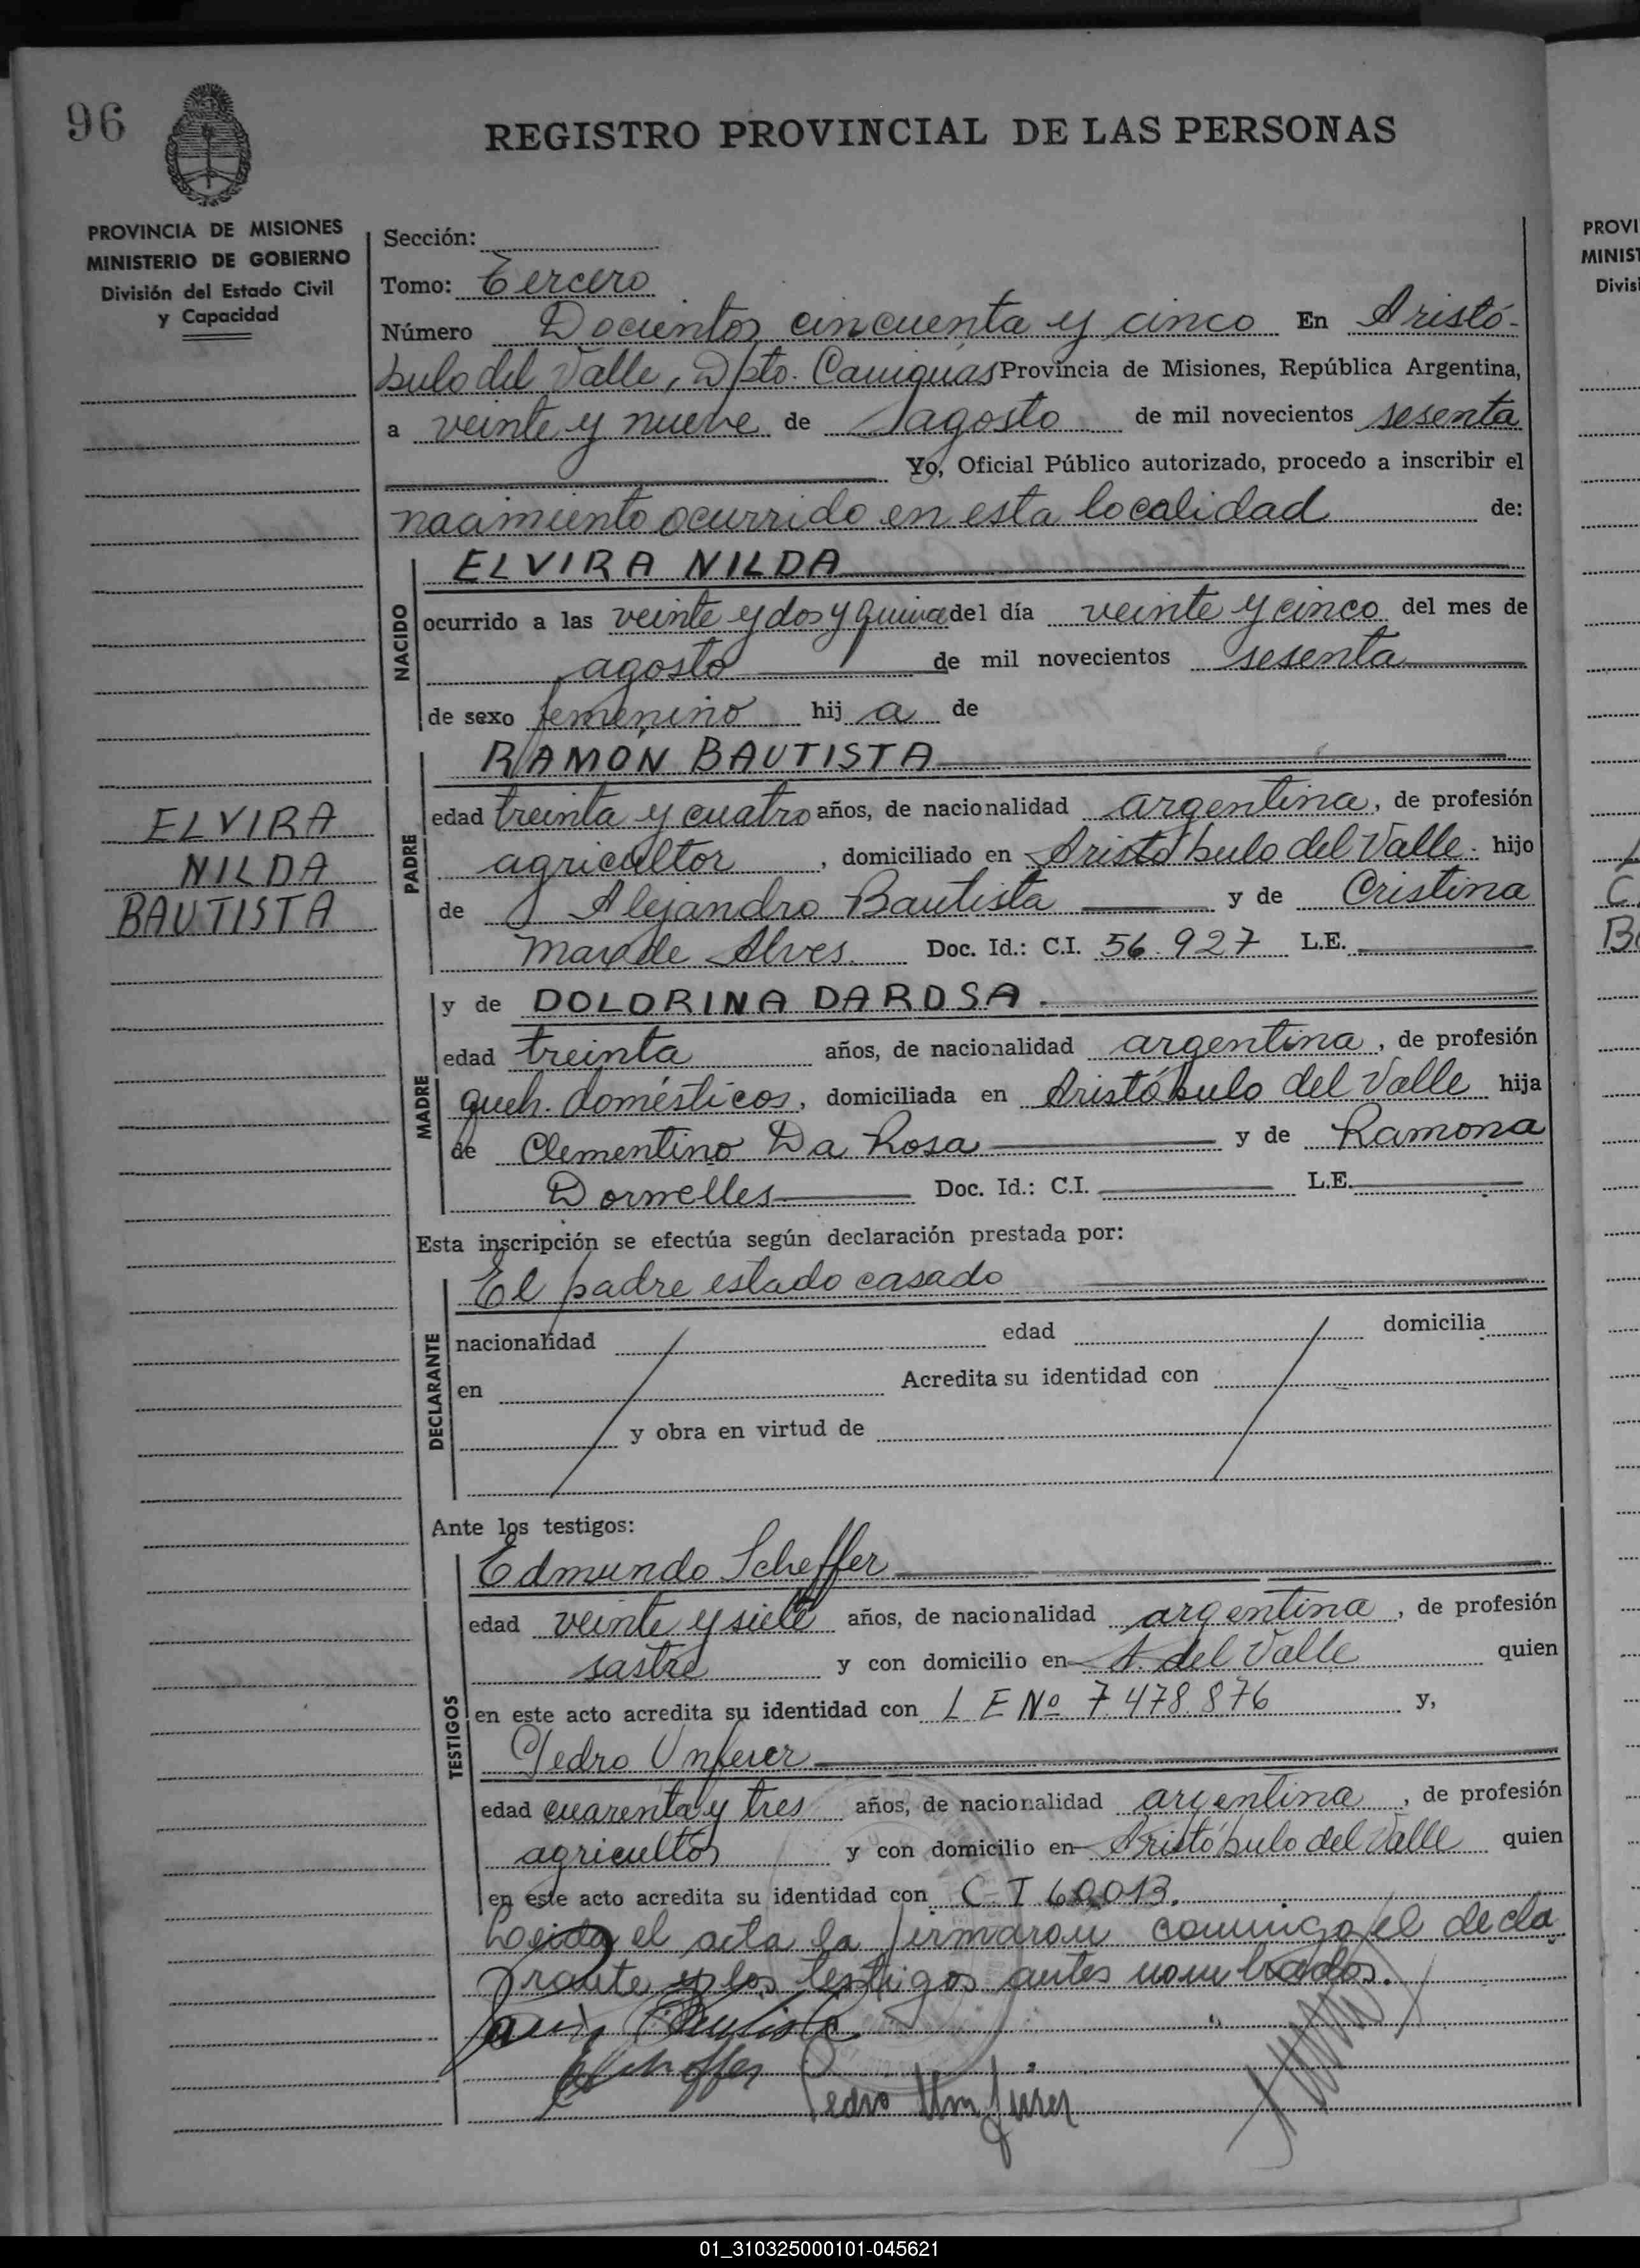 96
REGISTRO PROVINCIAL DE LAS PERSONAS
PROVINCIA DE MISIONES
MINISTERIO DE GOBIERNO
División del Estado Civil
y Capacidad
Sección:
Tomo: Tercero
Número Docientos cincuenta y cinco En Aristó-
bulo del Valle, Dpto. Cainguás Provincia de Misiones, República Argentina,
a veinte y nueve de agosto de mil novecientos sesenta
Yo, Oficial Público autorizado, procedo a inscribir el
nacimiento ocurrido en esta localidad de:
NACIDO
ELVIRA NILDA
ocurrido a las veinte y dos y quince del día veinte y cinco del mes de
agosto de mil novecientos sesenta
de sexo femenino hij a de
PADRE
RAMÓN BAUTISTA
edad treinta y cuatro años, de nacionalidad argentina, de profesión
agricultor, domiciliado en Aristóbulo del Valle. hijo
de Alejandro Bautista y de Cristina
Alves. Doc. Id.: C.I. 56.927 L.E.
ELVIRA
NILDA
BAUTISTA
MADRE
y de DOLORINA DAROSA.
edad treinta años, de nacionalidad argentina, de profesión
queh. domésticos, domiciliada en Aristóbulo del Valle hija
de Clementino Da Rosa y de Ramona
Dornelles Doc. Id.: C.I. L.E.
Esta inscripción se efectúa según declaración prestada por:
DECLARANTE
El padre estado casado
nacionalidad edad domicilia
en Acredita su identidad con
y obra en virtud de
Ante los testigos:
TESTIGOS
Edmundo Scheffer
edad veinte y siete años, de nacionalidad argentina, de profesión
sastre y con domicilio en A. del Valle quien
en este acto acredita su identidad con L E Nº 7.478.876 y,
Pedro
edad cuarenta y tres años, de nacionalidad argentina, de profesión
agricultor y con domicilio en Aristóbulo del Valle quien
en este acto acredita su identidad con C I 60.013.
Leida el acta la firmaron conmigo el decla
rante y los testigos antes nombrados.
Bautista
Scheffer
Pedro
PROVI
MINIST
Divisi
01_310325000101-045621